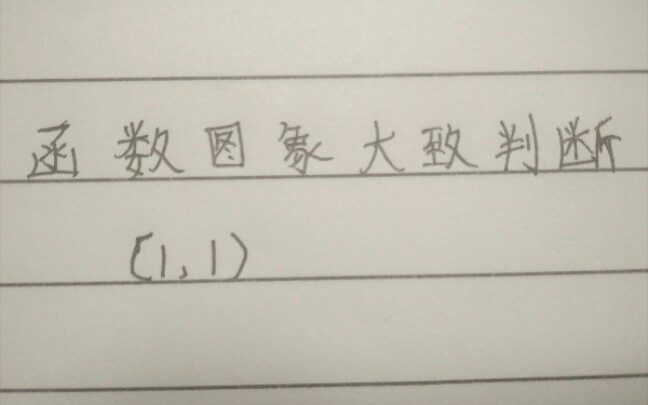 函数图象大致判断
(1,1)